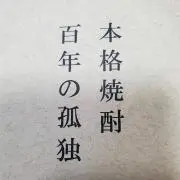 本格焼酎
百年の孤独